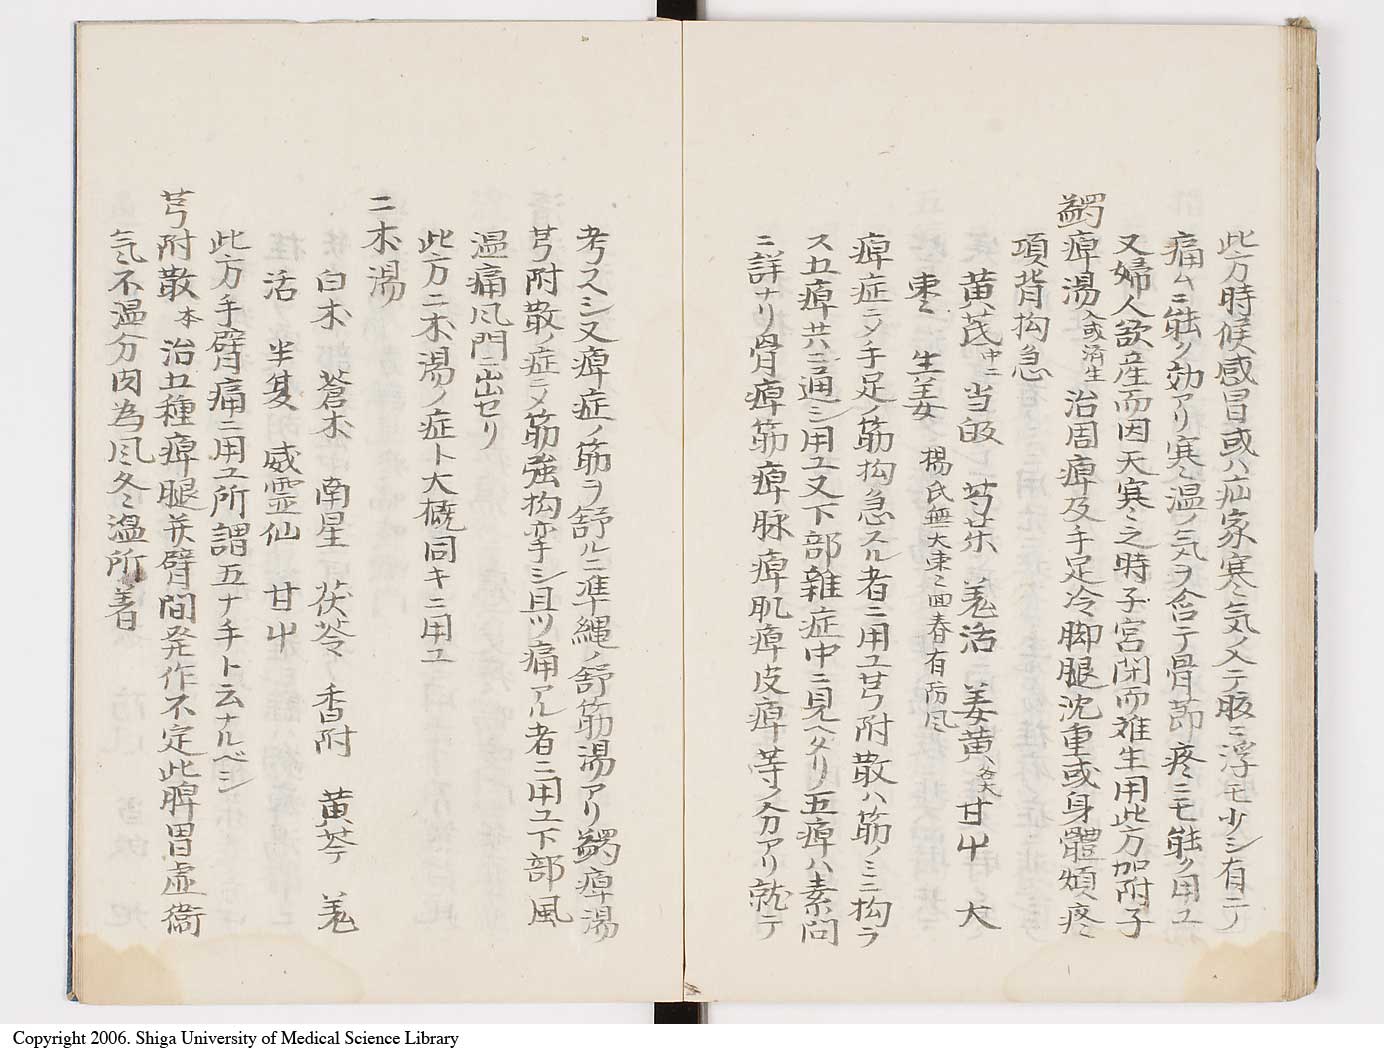 此方時候感冒或ハ疝家寒気ノ入テ腹ニ浮モ少シ有ニテ
痛ムニ能ク効アリ寒温ノ気ヲ含テ骨節疼ニモ能ク用ユ
又婦人欲産而因天寒之時子宮閉而難生用此方加附子
蠲痺湯 或済生 治周痺及手足冷脚腿沈重或身體煩疼
項背拘急
黄芪 中ニ 当皈 芍薬 羌活 姜黄 各大 甘艸 大
棗 生姜 楊氏無大棗回春有防風
痺症ニメ手足ノ筋拘急スル者ニ用ユ芎附散ハ筋ノミニ拘ラ
ス五痺共ニ通シ用ユ又下部雜症中ニ見ヘタリ五痺ハ素問
ニ詳ナリ骨痺筋痺脉痺肌痺皮痺等ノ分アリ就テ
考スシ又痺症ノ筋ヲ舒ルニ準縄ノ舒筋湯アリ蠲痺湯
芎附散ノ症ニメ筋強拘牵シ且ツ痛アル者ニ用ユ下部風
温痛風門ニ出セリ
此方二朮湯ノ症ト大概同キニ用ユ
二朮湯
白朮 蒼朮 南星 茯苓 香附 黄芩 羌
活 半夏 威霊仙 甘艸
此方手臂痛ニ用ユ所謂五十手ト云ナルベシ
芎附散 本 治五種痺腿并臂間発作不定此脾胃虚衛
気不温分肉為風冬温所著
Copyright 2006. Shiga University of Medical Science Library